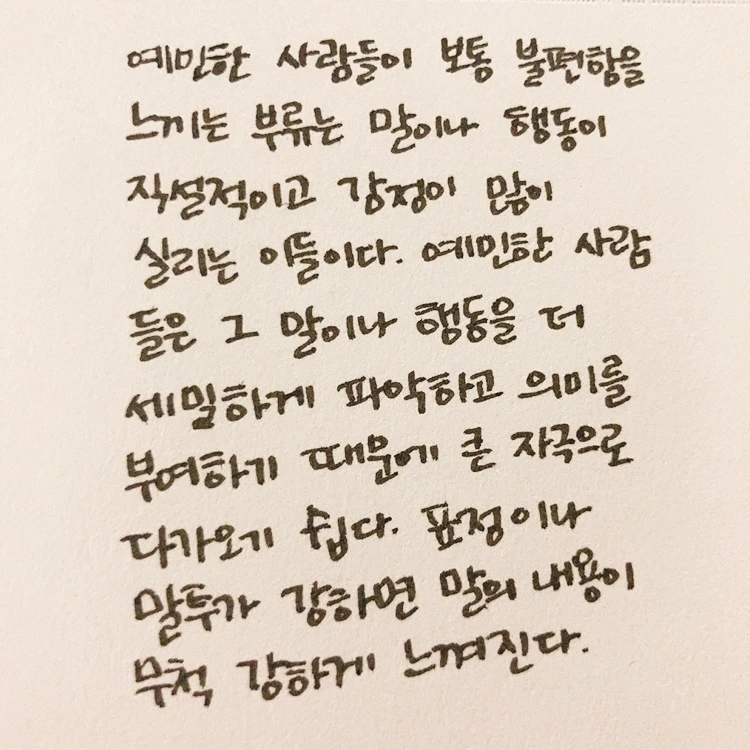 예민한 사람들이 보통 불편함을
느끼는 부류는 말이나 행동이
직설적이고 감정이 많이
실리는 이들이다. 예민한 사람
들은 그 말이나 행동을 더
세밀하게 파악하고 의미를
부여하기 때문에 큰 자극으로
다가오기 쉽다. 표정이나
말투가 강하면 말의 내용이
무척 강하게 느껴진다.